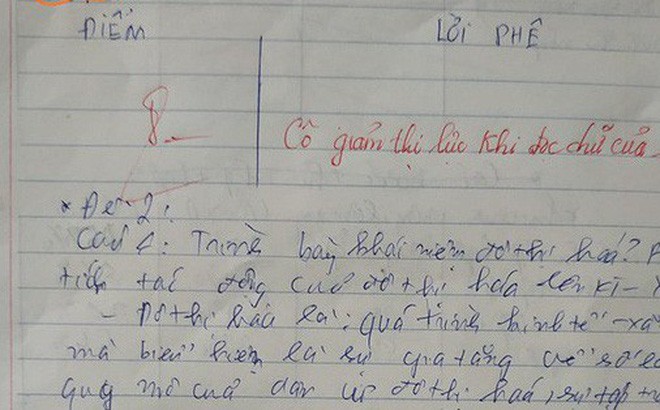 ĐIỂM
LỜI PHÊ
8
Cô giảm thị lực khi đọc chữ của
* Đề 2:
Câu 1: Trình bày khái niệm đô thị hoá? P
tích tác động của đô thị hóa lên KT - X
- Đô thị hóa là: quá trình kinh tế - xã
mà biểu hiện là sự gia tăng về số l
quy mô của dân cư đô thị hoá, sự tập tr